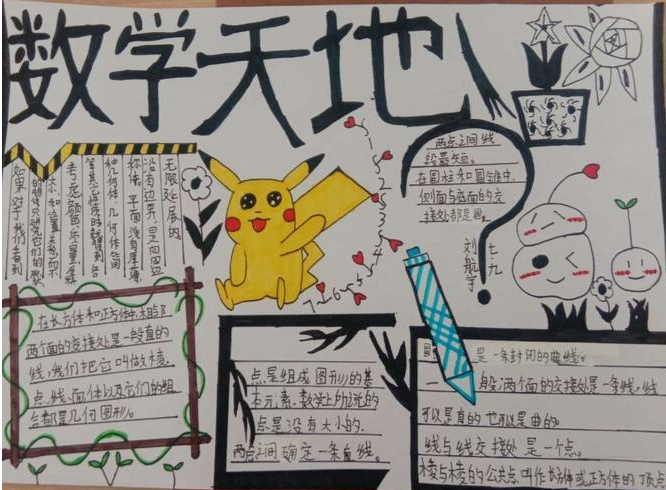 数学天地
两点之间线
段最短。
在圆柱和圆锥中,
侧面与底面的交
接处都是圆。
七九
刘航宇
无限延展的。
没有边界,是向四边
称体。平面没有厚薄,
种几何体,几何体简
考虑颜色、重量、材
如果对于我们看到
在长方体和正方体中,相邻
两个面的交接处是一段直的
线,我们把它叫做棱,
点、线、面、体以及它们的组
合都是几何图形。
点是组成图形的基
本元素,数学上所说的
点是没有大小的,
两点之间确定一条直线。
圆是一条封闭的曲线。
一般,两个面的交接处是一条线,线
可以是直的也可以是曲的。
线与线交接处是一个点。
棱与棱的公共点叫作长方体或正方体的顶点